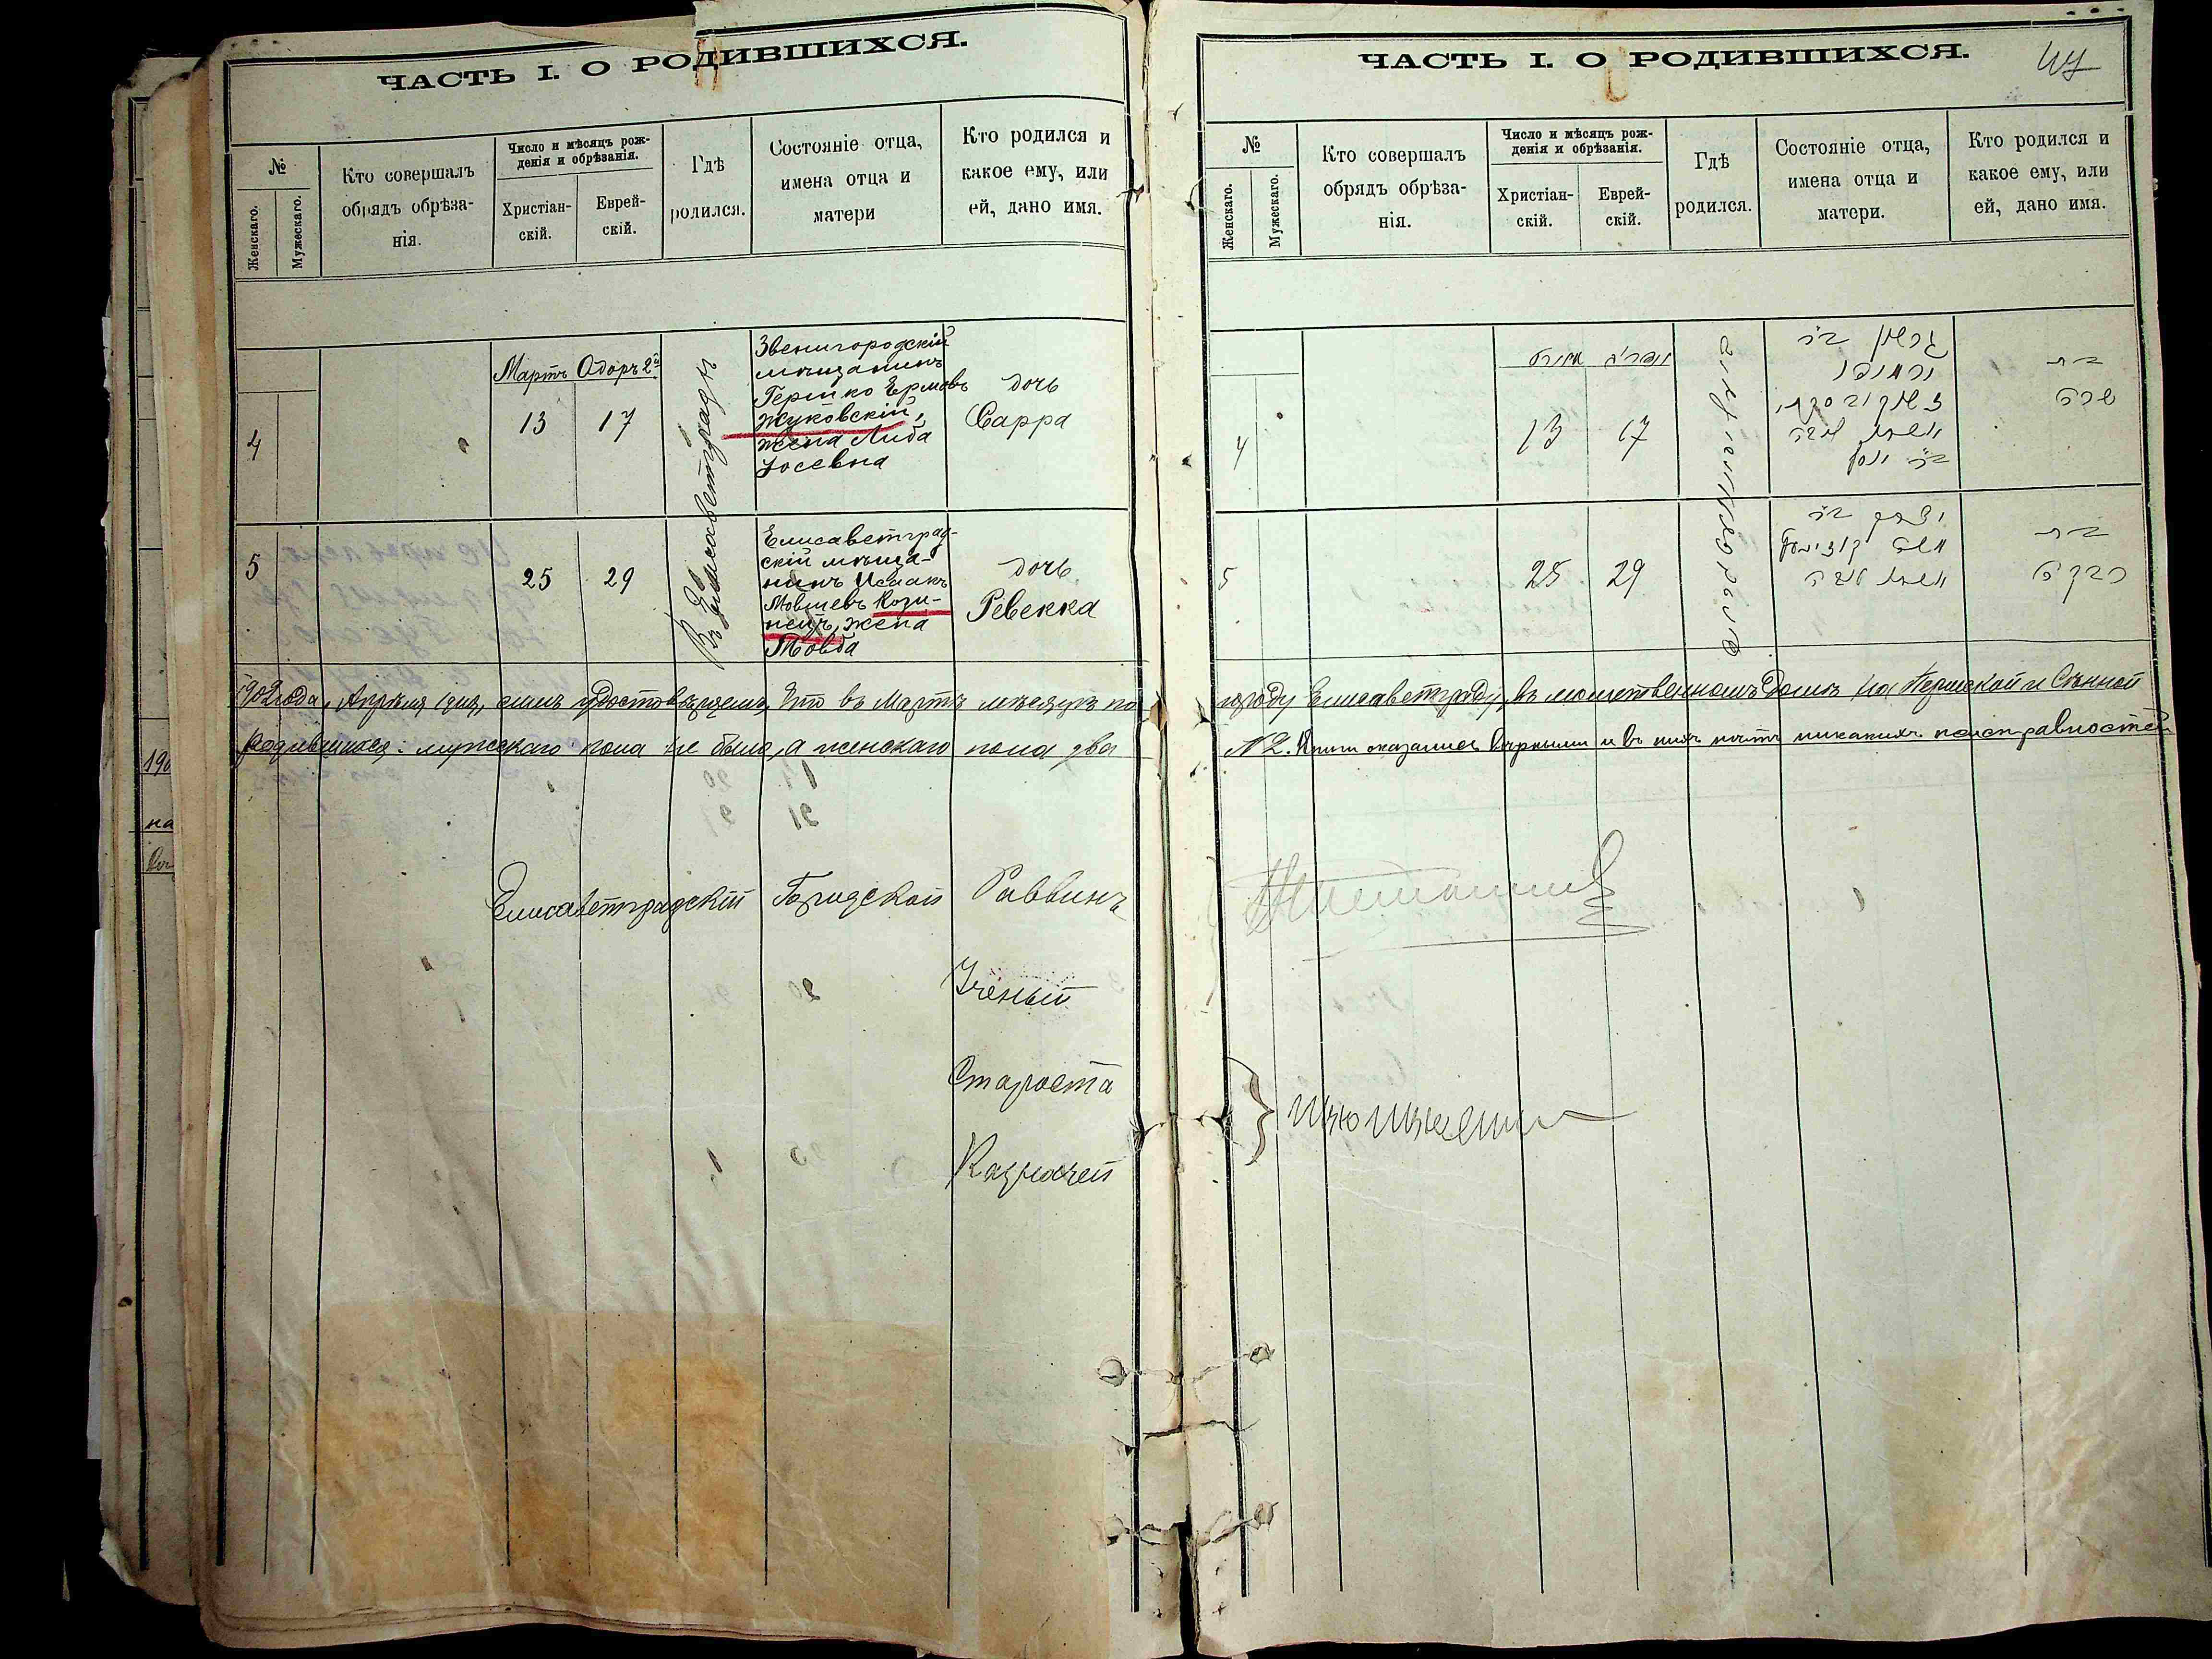 ЧАСТЬ I. О РОДИВШИХСЯ.
№
Женскаго.
Мужескаго.
Кто совершалъ
обрядъ обрѣза-
нія.
Число и мѣсяцъ рож-
денія и обрѣзанія.
Христіан-
скій.
Еврей-
скій.
Гдѣ
родился.
Состояніе отца,
имена отца и
матери
Кто родился и
какое ему, или
ей, дано имя.
Мартъ Одоръ 2й
4
13
17
Въ Елисаветградѣ
Звенигородскій
мѣщанинъ
Гершко Ермовъ
Жуковскій,
жена Либа
Іосевна
дочь
Сарра
5
25
29
Елисаветград-
скій мѣща-
нинъ Исаакъ
Мовшевъ Кози-
нецъ, жена
Товба
дочь
Ревекка
1902 года, Апрѣля 1 дня, симъ удостовѣряемъ, что въ Мартѣ мѣсяцѣ по
родившихся: мужскаго пола не было, а женскаго пола два
Елисаветградскій Городской Раввинъ
Ученый
Староста
Казначей
ЧАСТЬ I. О РОДИВШИХСЯ.
№
Женскаго.
Мужескаго.
Кто совершалъ
обрядъ обрѣза-
нія.
Число и мѣсяцъ рож-
денія и обрѣзанія.
Христіан-
скій.
Еврей-
скій.
Гдѣ
родился.
Состояніе отца,
имена отца и
матери.
Кто родился и
какое ему, или
ей, дано имя.
4
13
17
בת
שרה
5
25
29
יצחק בר
משה קאזינעץ
בת
רבקה
городу Елисаветграду, въ молитвенномъ домѣ на Пермской и Сѣнной
№ 2. Книги оказались вѣрными и въ нихъ нѣтъ никакихъ неисправностей